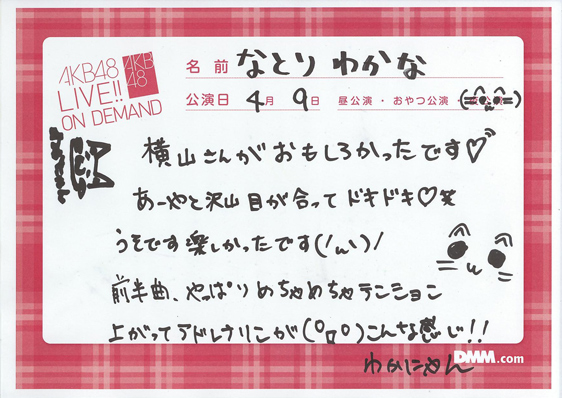 AKB48
LIVE!!
ON DEMAND
AKB
48
名前 なとり わかな
公演日 4月 9日 昼公演・おやつ公演・
横山さんがおもしろかったです♡
あーやと沢山目が合ってドキドキ♡笑
うそです楽しかったです(/ω\)/
前半曲、やっぱりめちゃめちゃテンション
上がってアドレナリンが(°ロ°)こんな感じ!!
わかにゃん
DMM.com